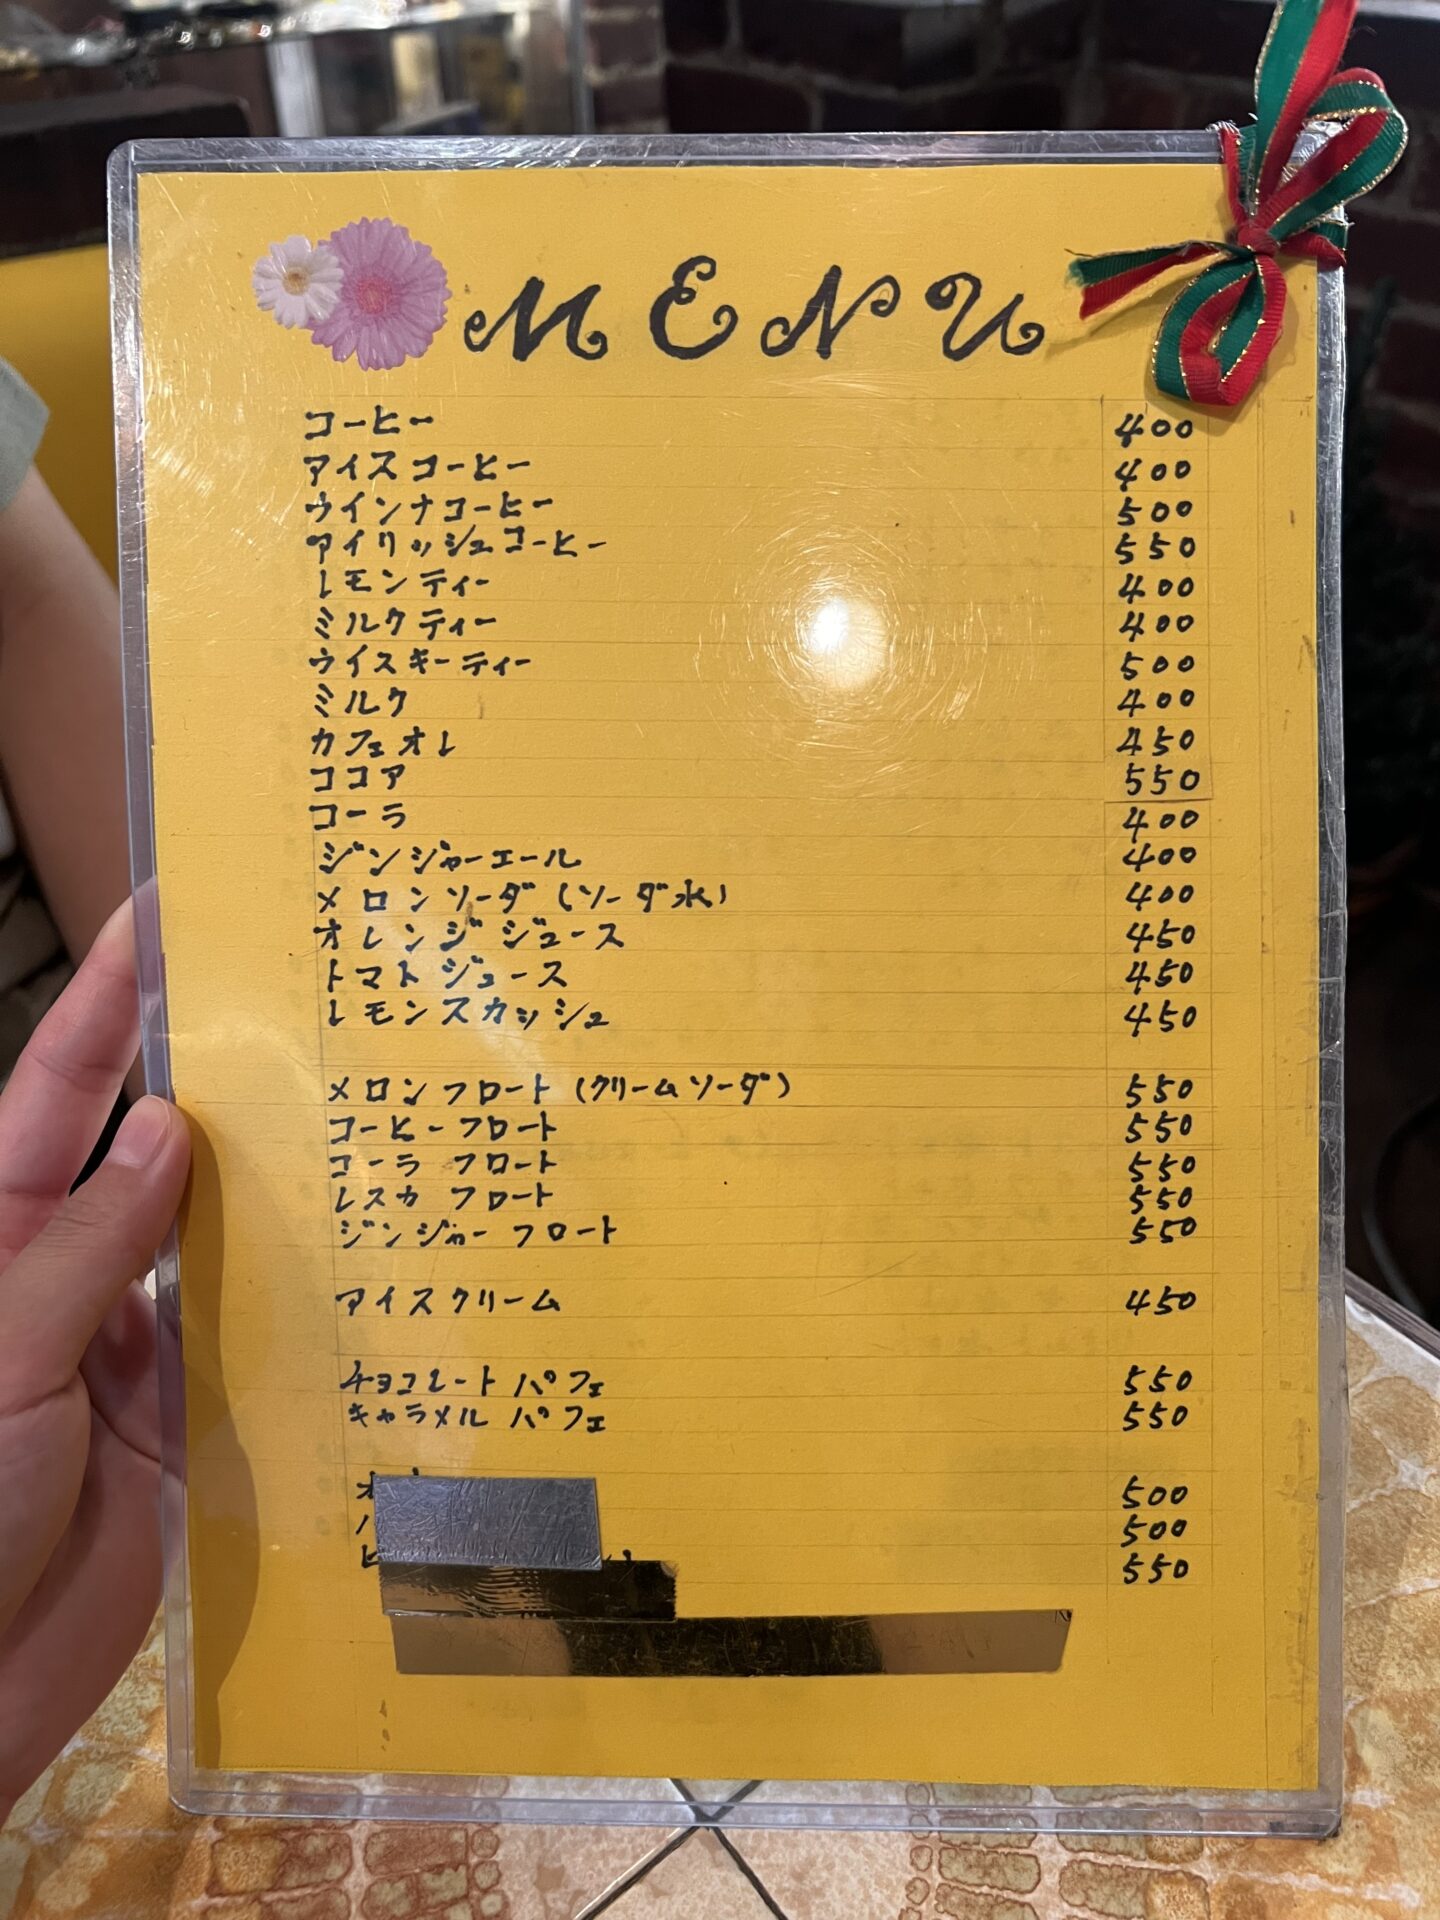 MENU
コーヒー 400
アイスコーヒー 400
ウインナコーヒー 500
アイリッシュコーヒー 550
レモンティー 400
ミルクティー 400
ウイスキーティー 500
ミルク 400
カフェオレ 450
ココア 550
コーラ 400
ジンジャーエール 400
メロンソーダ(ソーダ水) 400
オレンジジュース 450
トマトジュース 450
レモンスカッシュ 450
メロンフロート(クリームソーダ) 550
コーヒーフロート 550
コーラ フロート 550
レスカ フロート 550
ジンジャー フロート 550
アイスクリーム 450
チョコレート パフェ 550
キャラメル パフェ 550
500
500
550